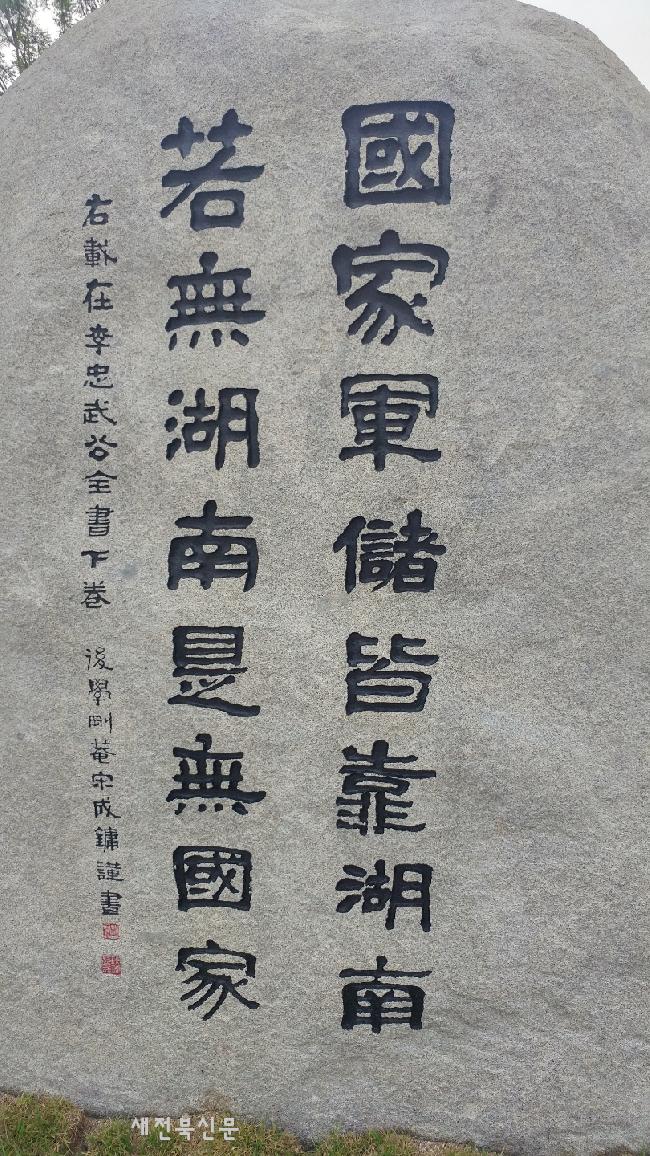 國家軍儲皆靠湖南
若無湖南是無國家
右載在李忠武公全書下卷 後學剛菴宋成鏞謹書
새전북신문